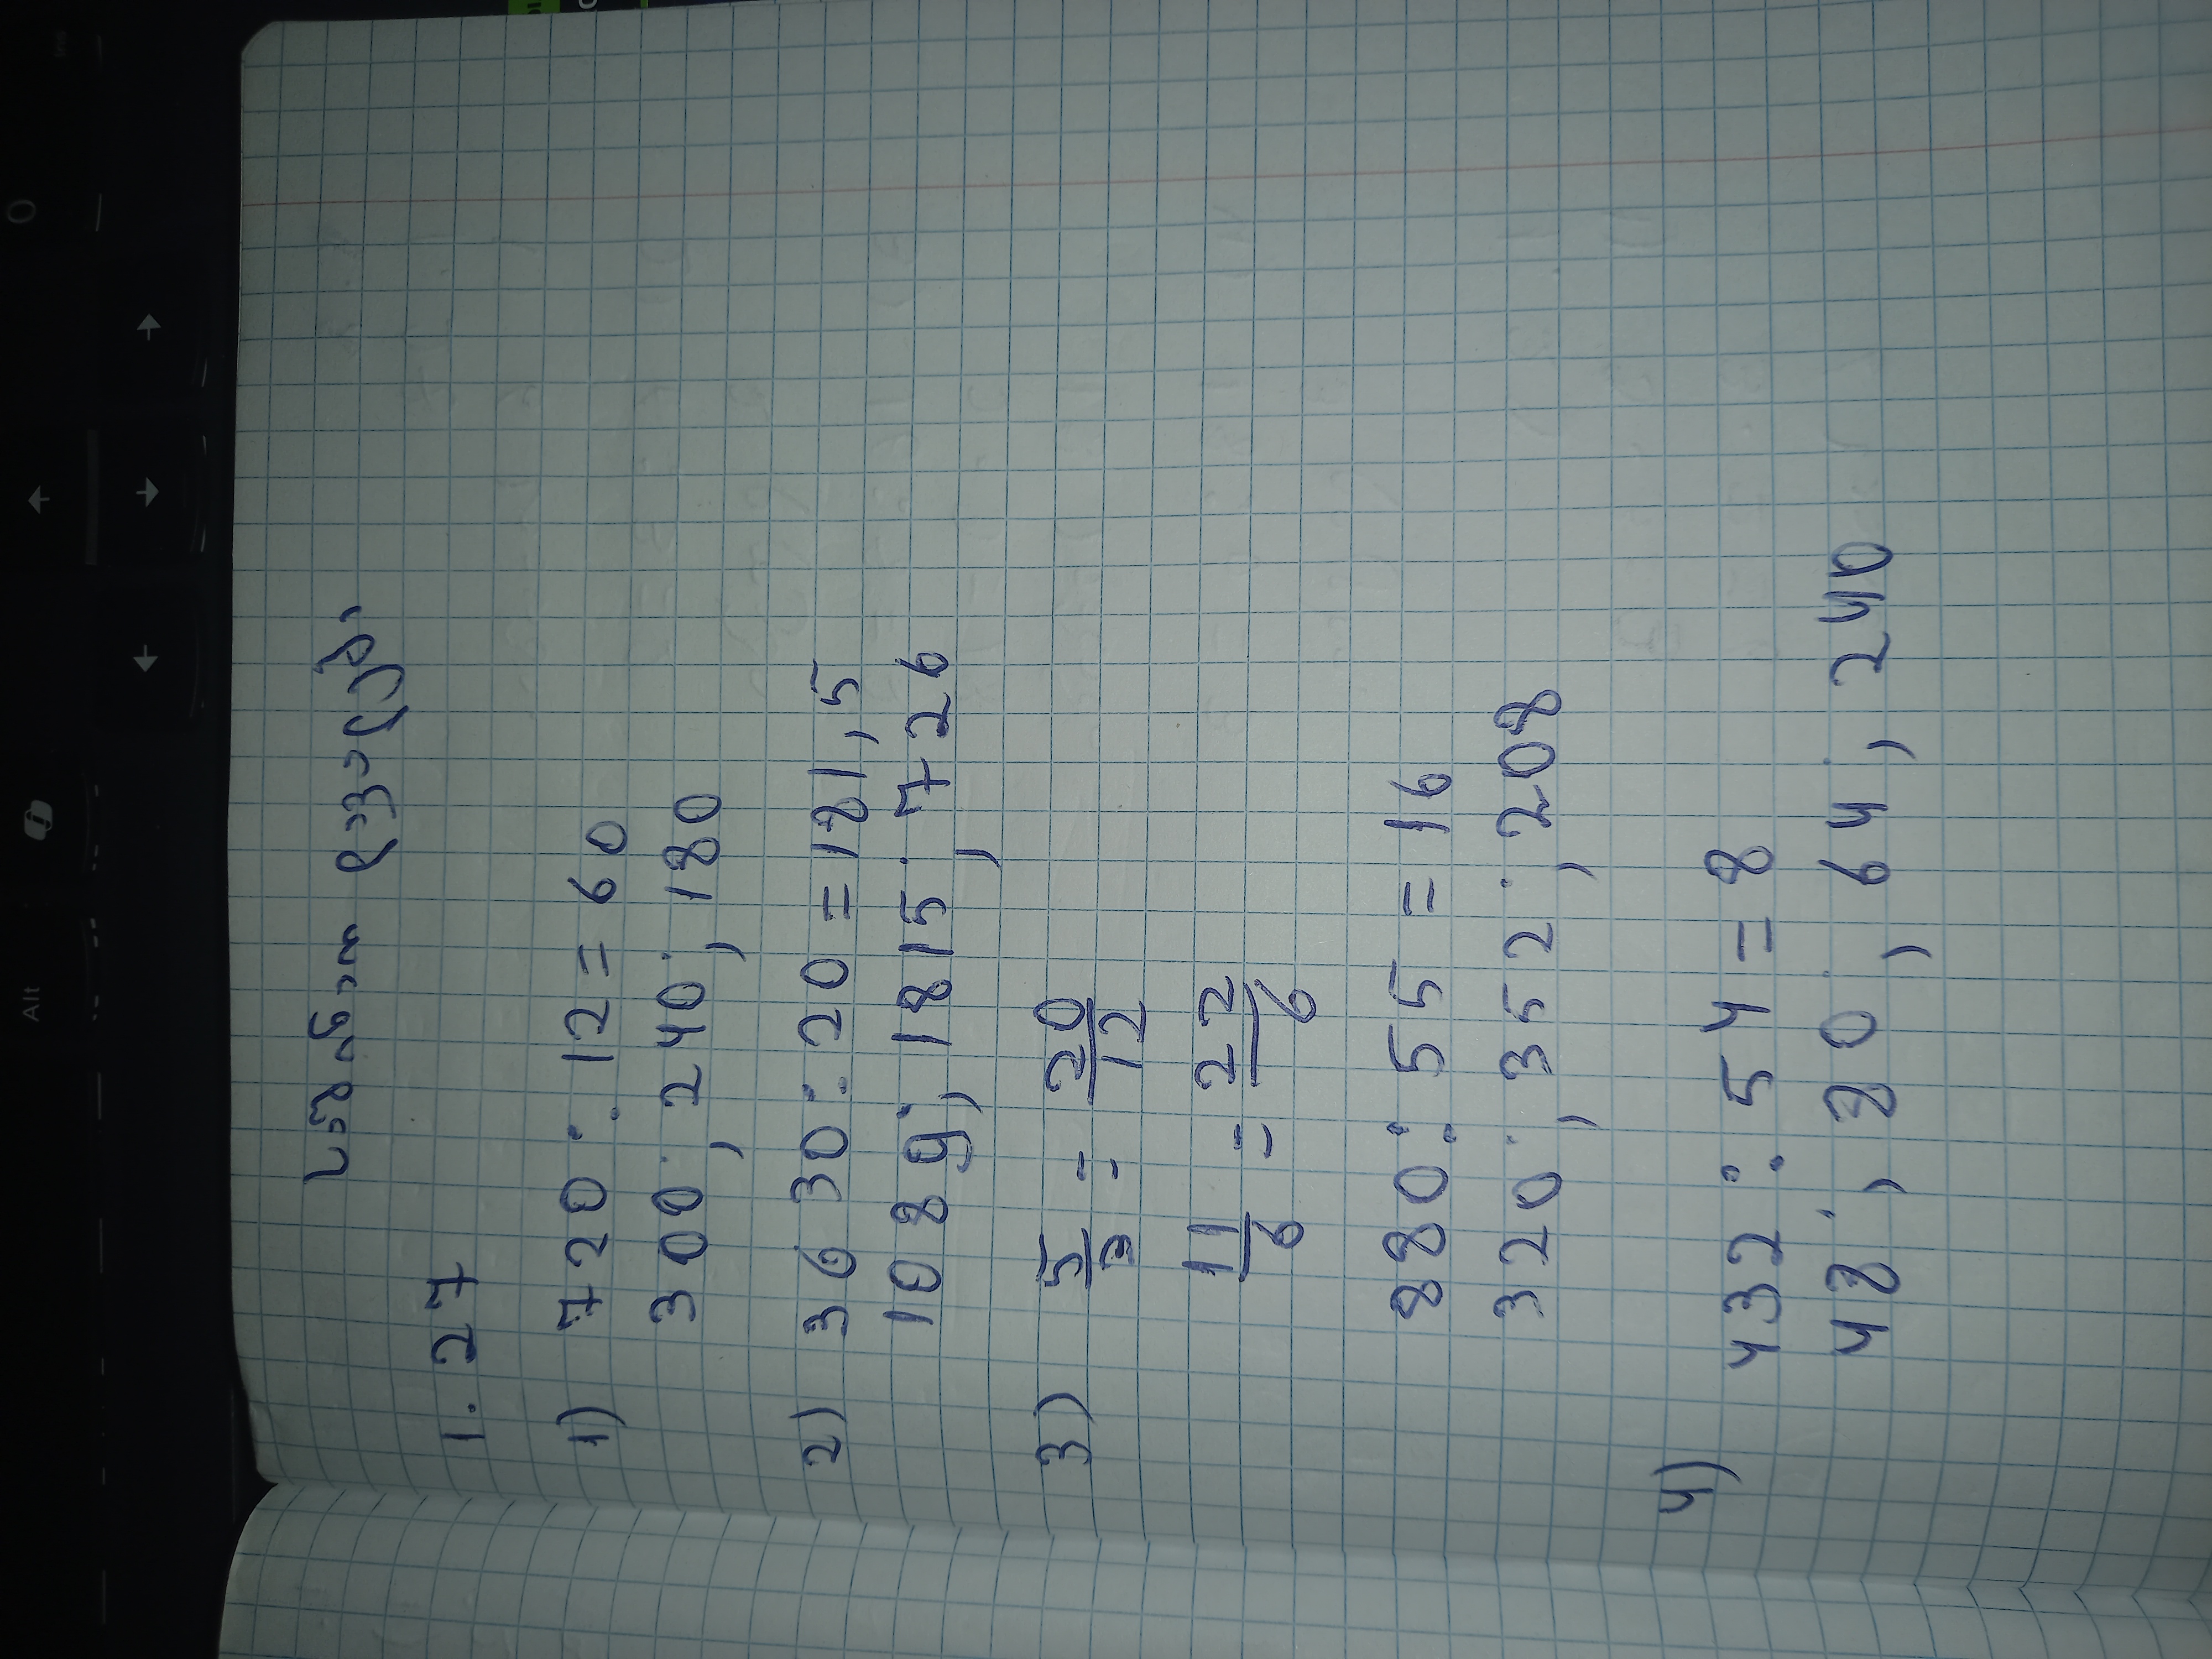 Alt
0
Ins
საშინაო დავალება
1. 27
1) 720 : 12 = 60
300; 240; 180
2) 3630 : 20 = 181,5
1089; 1815; 726
3) 5/3 = 20/12
11/6 = 22/6
880 : 55 = 16
320; 352; 208
4)
432 : 54 = 8
48; 80; 64; 240